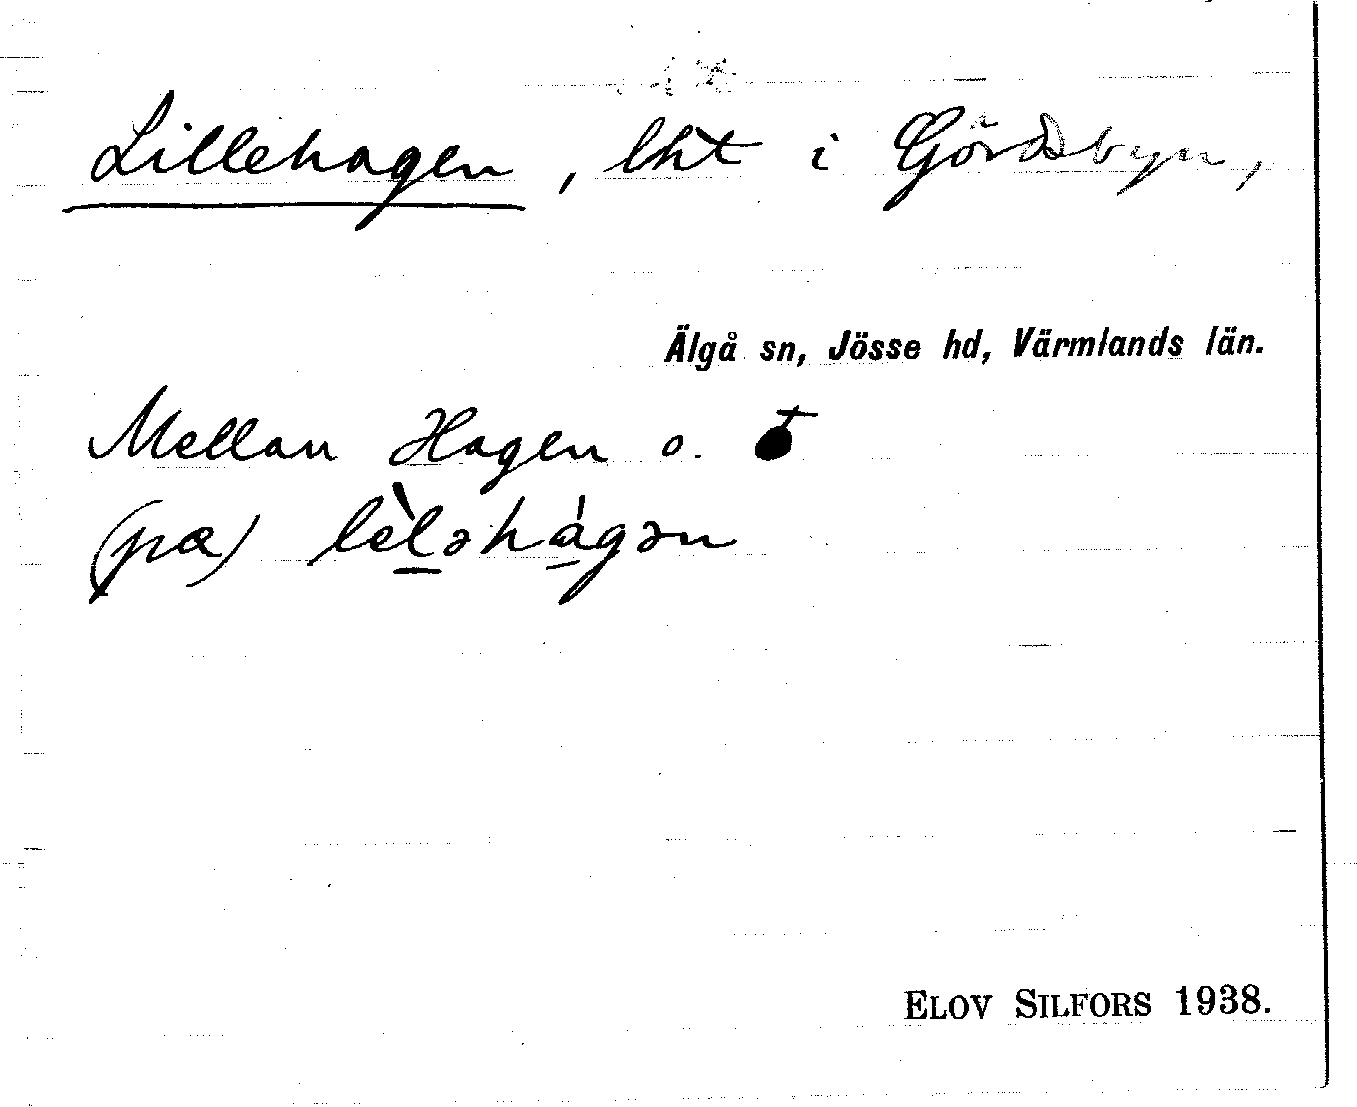 Lillehagen, lht i Gördsbyn,
Älgå sn, Jösse hd, Värmlands län.
Mellan Hagen o.
(pæ) lèləhágən
ELOV SILFORS 1938.